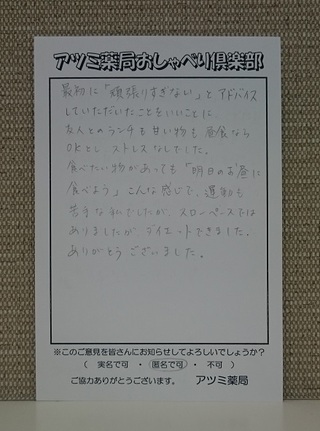 アツミ薬局おしゃべり倶楽部
最初に「頑張りすぎない」とアドバイス
していただいたことをいいことに
友人とのランチも甘い物も昼食なら
OKとし ストレスなしでした。
食べたい物があっても「明日のお昼に
食べよう」こんな感じで、運動も
苦手な私でしたが、スローペースでは
ありましたが ダイエットできました。
ありがとうございました。
※このご意見を皆さんにお知らせしてよろしいでしょうか？
（ 実名で可 ・ 匿名で可 ・ 不可 ）
ご協力ありがとうございます。 アツミ薬局